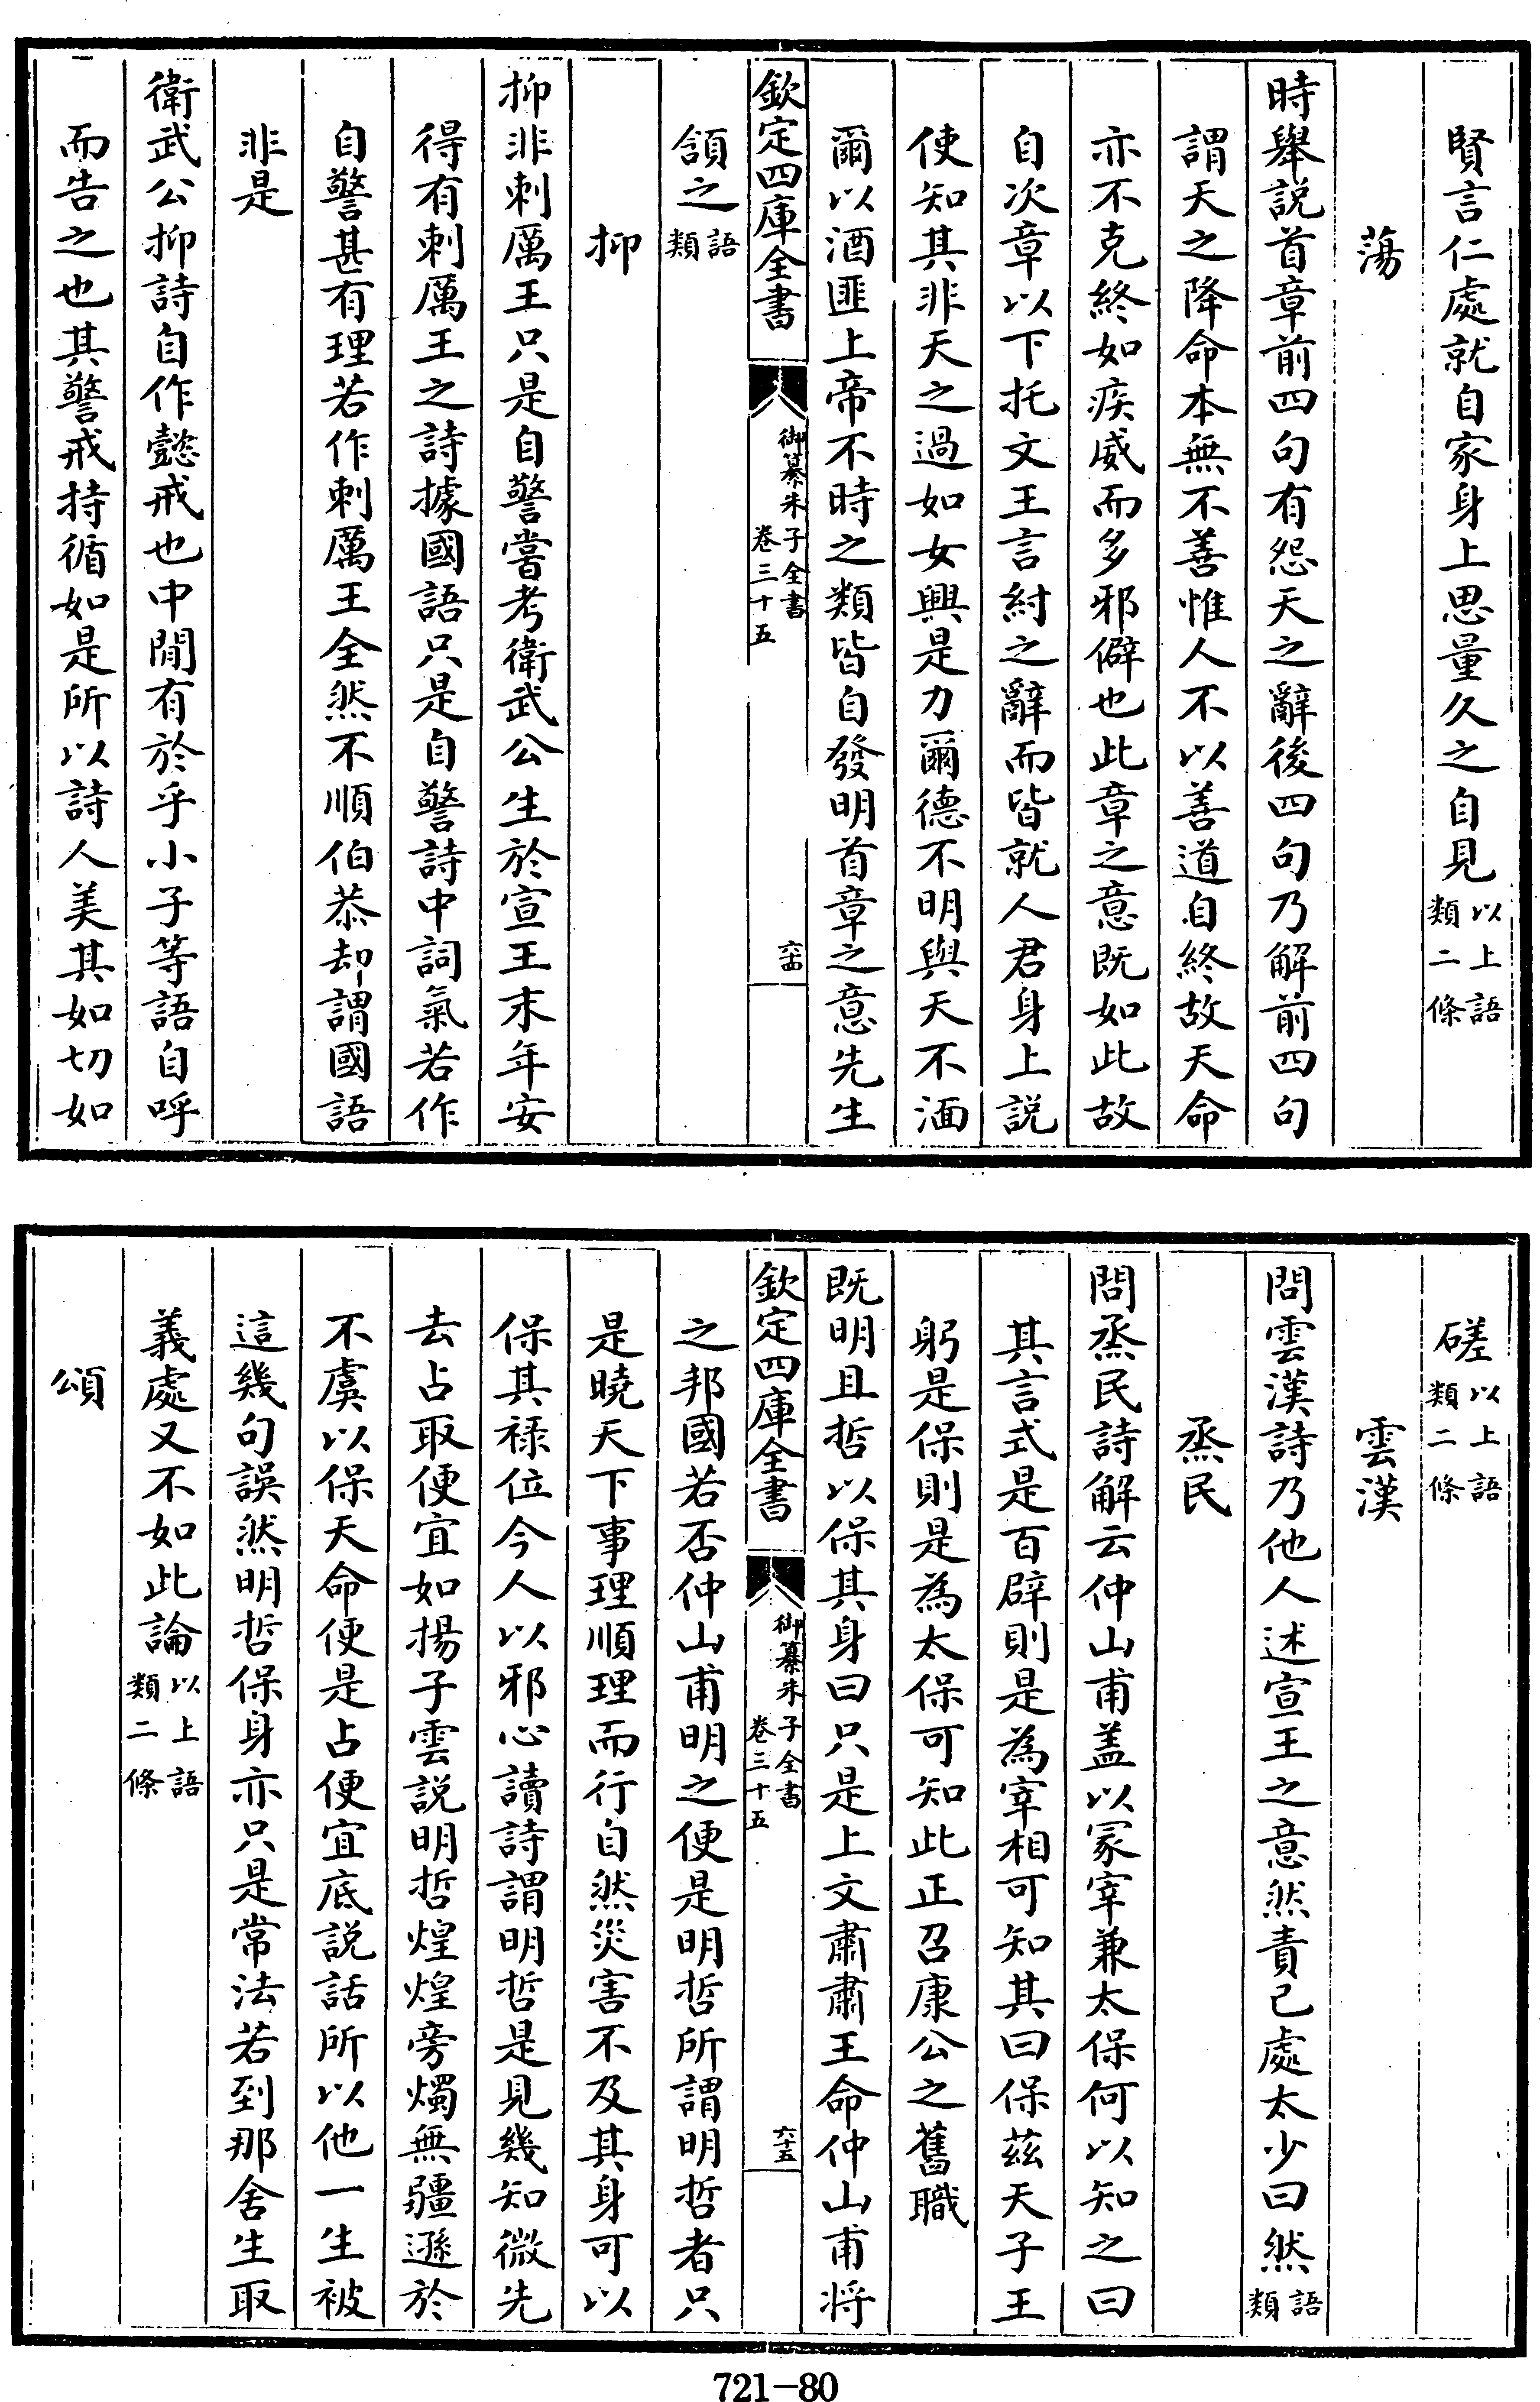 賢言仁處就自家身上思量久之自見以上語類二條
蕩
時舉説首章前四句有怨天之辭後四句乃解前四句
謂天之降命本無不善惟人不以善道自終故天命
亦不克終如疾威而多邪僻也此章之意既如此故
自次章以下托文王言紂之辭而皆就人君身上説
使知其非天之過如女興是力爾德不明與天不湎
爾以酒匪上帝不時之類皆自發明首章之意先生
欽定四庫全書
御纂朱子全書
卷三十五
六十四
頷之語類
抑
抑非刺厲王只是自警嘗考衛武公生於宣王末年安
得有刺厲王之詩據國語只是自警詩中詞氣若作
自警甚有理若作刺厲王全然不順伯恭却謂國語
非是
衛武公抑詩自作懿戒也中間有於乎小子等語自呼
而告之也其警戒持循如是所以詩人美其如切如
磋以上語類二條
雲漢
問雲漢詩乃他人述宣王之意然責己處太少曰然語類
烝民
問烝民詩解云仲山甫盖以冢宰兼太保何以知之曰
其言式是百辟則是為宰相可知其曰保兹天子王
躬是保則是為太保可知此正召康公之舊職
既明且哲以保其身曰只是上文肅肅王命仲山甫将
欽定四庫全書
御纂朱子全書
卷三十五
六十五
之邦國若否仲山甫明之便是明哲所謂明哲者只
是曉天下事理順理而行自然災害不及其身可以
保其禄位今人以邪心讀詩謂明哲是見幾知微先
去占取便宜如揚子雲説明哲煌煌旁燭無疆遜於
不虞以保天命便是占便宜底説話所以他一生被
這幾句誤然明哲保身亦只是常法若到那舍生取
義處又不如此論以上語類二條
頌
721-80